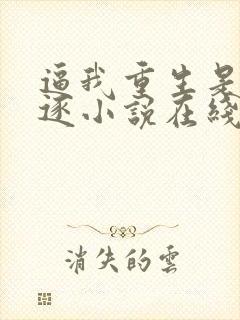 逼我重生是
逐小說在綫
消失的雲